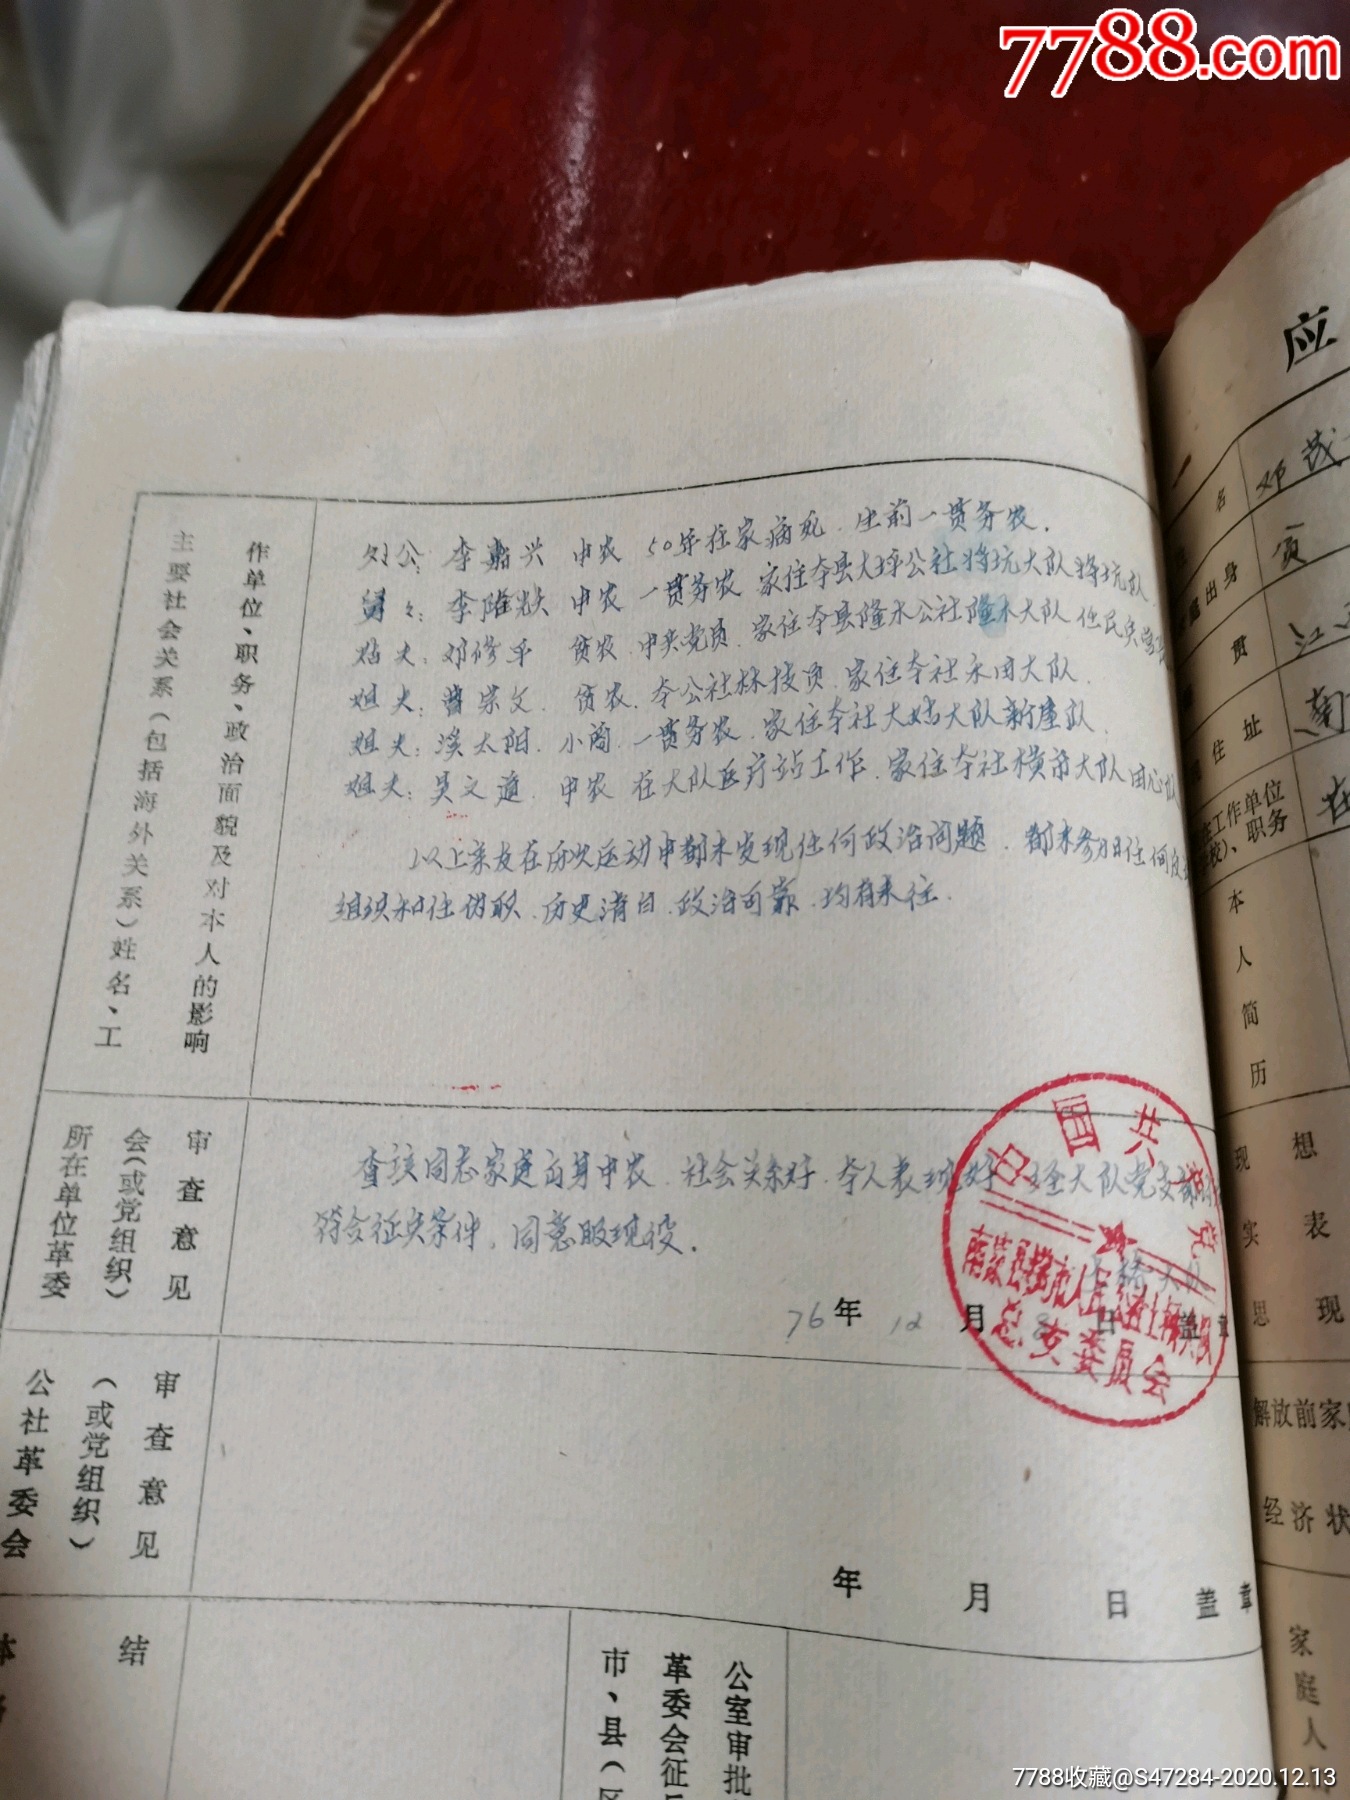 7788.com
主要社会关系（包括海外关系）姓名、工
作单位、职务、政治面貌及对本人的影响
外公：李嘉兴 中农 50年在家病死．生前一贯务农．
舅々：李 中农 一贯务农 家住本县大坪公社将坑大队将坑队
姑夫：邓修平 贫农．中共党员．家住本县隆木公社隆木大队 任民兵
姐夫：曹宗文．贫农．本公社林技员．家住本社永田大队．
姐夫：溪太阳．小商．一贯务农．家住本社大 大队新屋队
姐夫：吴文道．中农 在大队医疗站工作．家住本社横 大队田心队
以上亲友在历次运动中都未发现任何政治问题．都未参加任何反
组织和任伪职．历史清白．政治可靠．均有来往．
所在单位革委
会（或党组织）
审查意见
查该同志家庭出身中农．社会关系好．本人表现好．经大队党支部
符合征兵条件，同意服现役．
76年12月8日 盖章
中国共产党
总支委员会
公社革委会
（或党组织）
审查意见
年 月 日 盖章
结
市、县（区
革委会征兵
公室审批
应
名 邓茂
出身 贫
贯 江
住址 南
工作单位
校）、职务 在
本人简历
现实
思想
表现
解放前家
经济状
家庭人
7788收藏@S47284-2020.12.13